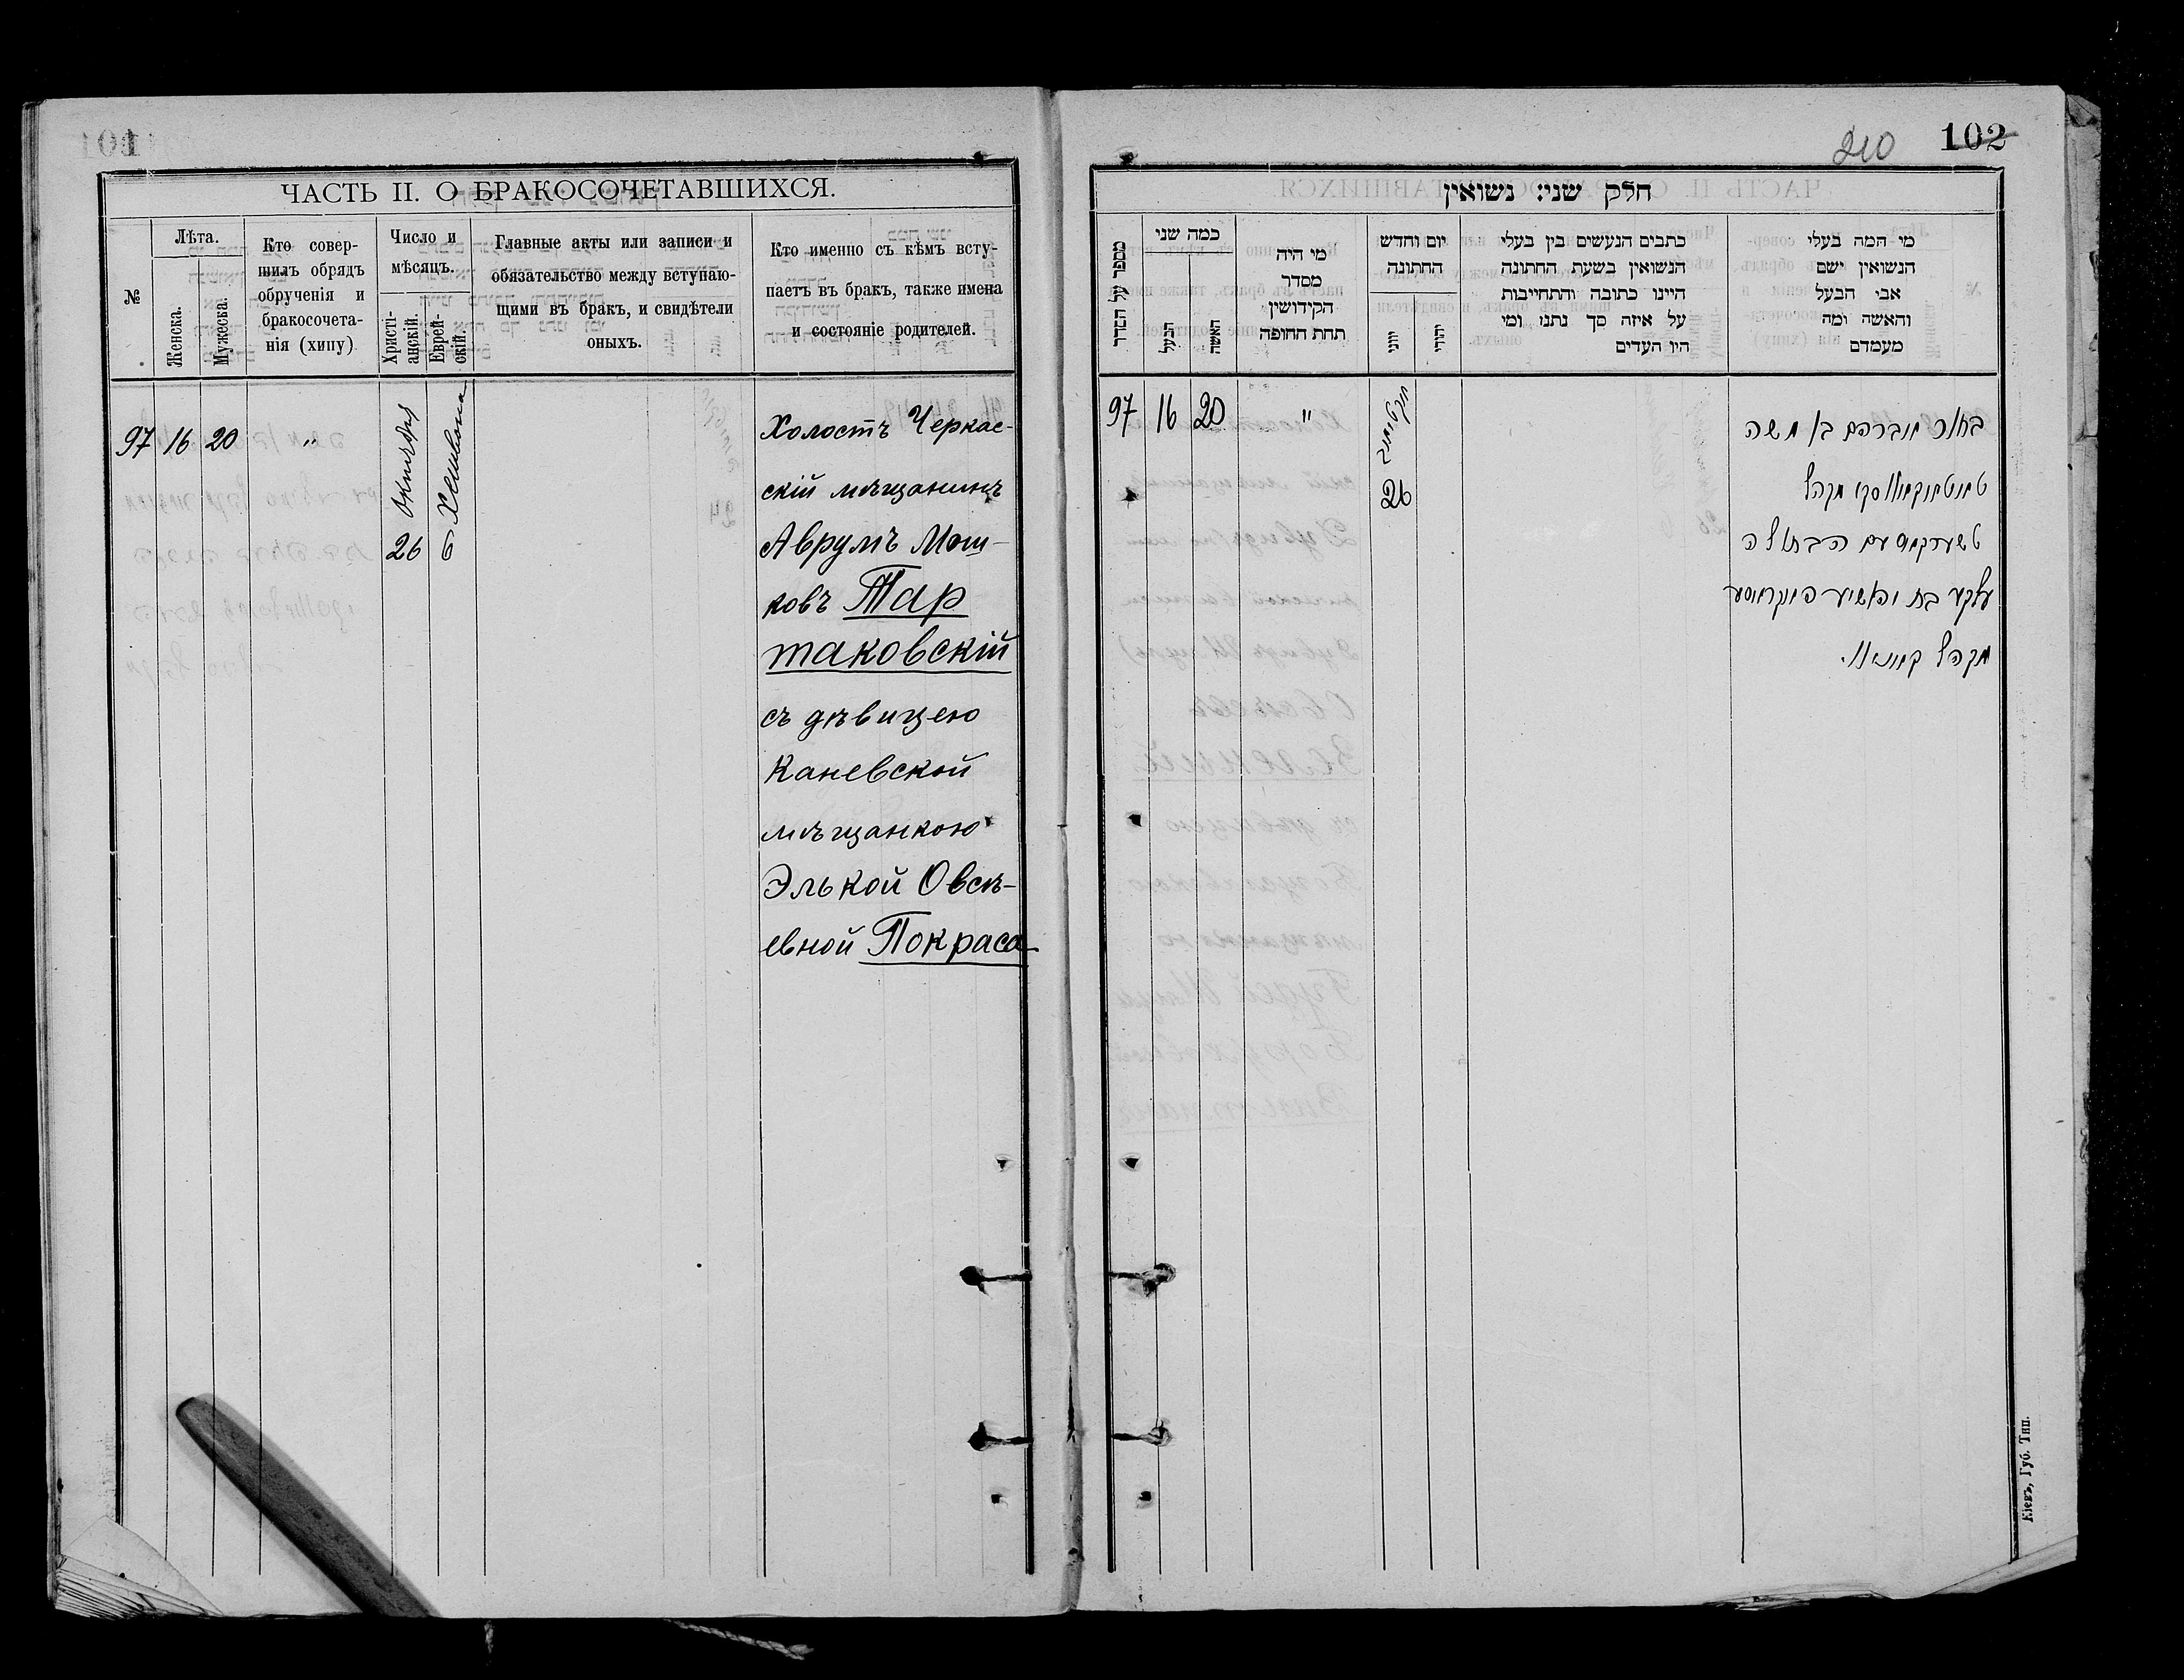 ЧАСТЬ II. О БРАКОСОЧЕТАВШИХСЯ.
№
Лѣта.
Женска.
Мужеска.
Кто совер-
шилъ обрядъ
обрученія и
бракосочета-
нія (хипу)
Число и
мѣсяцъ.
Христі-
анскій.
Еврей-
скій.
Главные акты или записи и
обязательство между вступаю-
щими въ бракъ, и свидѣтели
оныхъ.
Кто именно съ кѣмъ всту-
паетъ въ бракъ, также имена
и состояніе родителей.
97 16 20 " 26 Октября 6 Хешвона
Холостъ Черкас-
скій мѣщанинъ
Аврумъ Мош-
ковъ Тар
таковскій
съ дѣвицею
Каневской
мѣщанкою
Элькой Овсѣ-
евной Покраса
210 102
חלק שני: נשואין
מספר על הסדר
כמה שני
הבעל
האשה
מי היה
מסדר
הקידושין
תחת החופה
יום וחדש
החתונה
יווני
יהודי
כתבים הנעשים בין בעלי
הנשואין בשעת החתונה
היינו כתובה והתחייבות
על איזה סך נתנו ומי
היו העדים
מי המה בעלי
הנשואין ושם
אבי הבעל
והאשה ומה
מעמדם
97 16 20 "
26
באחר אברהם בן משה
טארטאקאווסקי מקהל
טשערקאס עם הבתולה
עלקע בת יהאשיע פאקראסע
מקהל קאניוו.
Кіевъ, Губ. Тип.